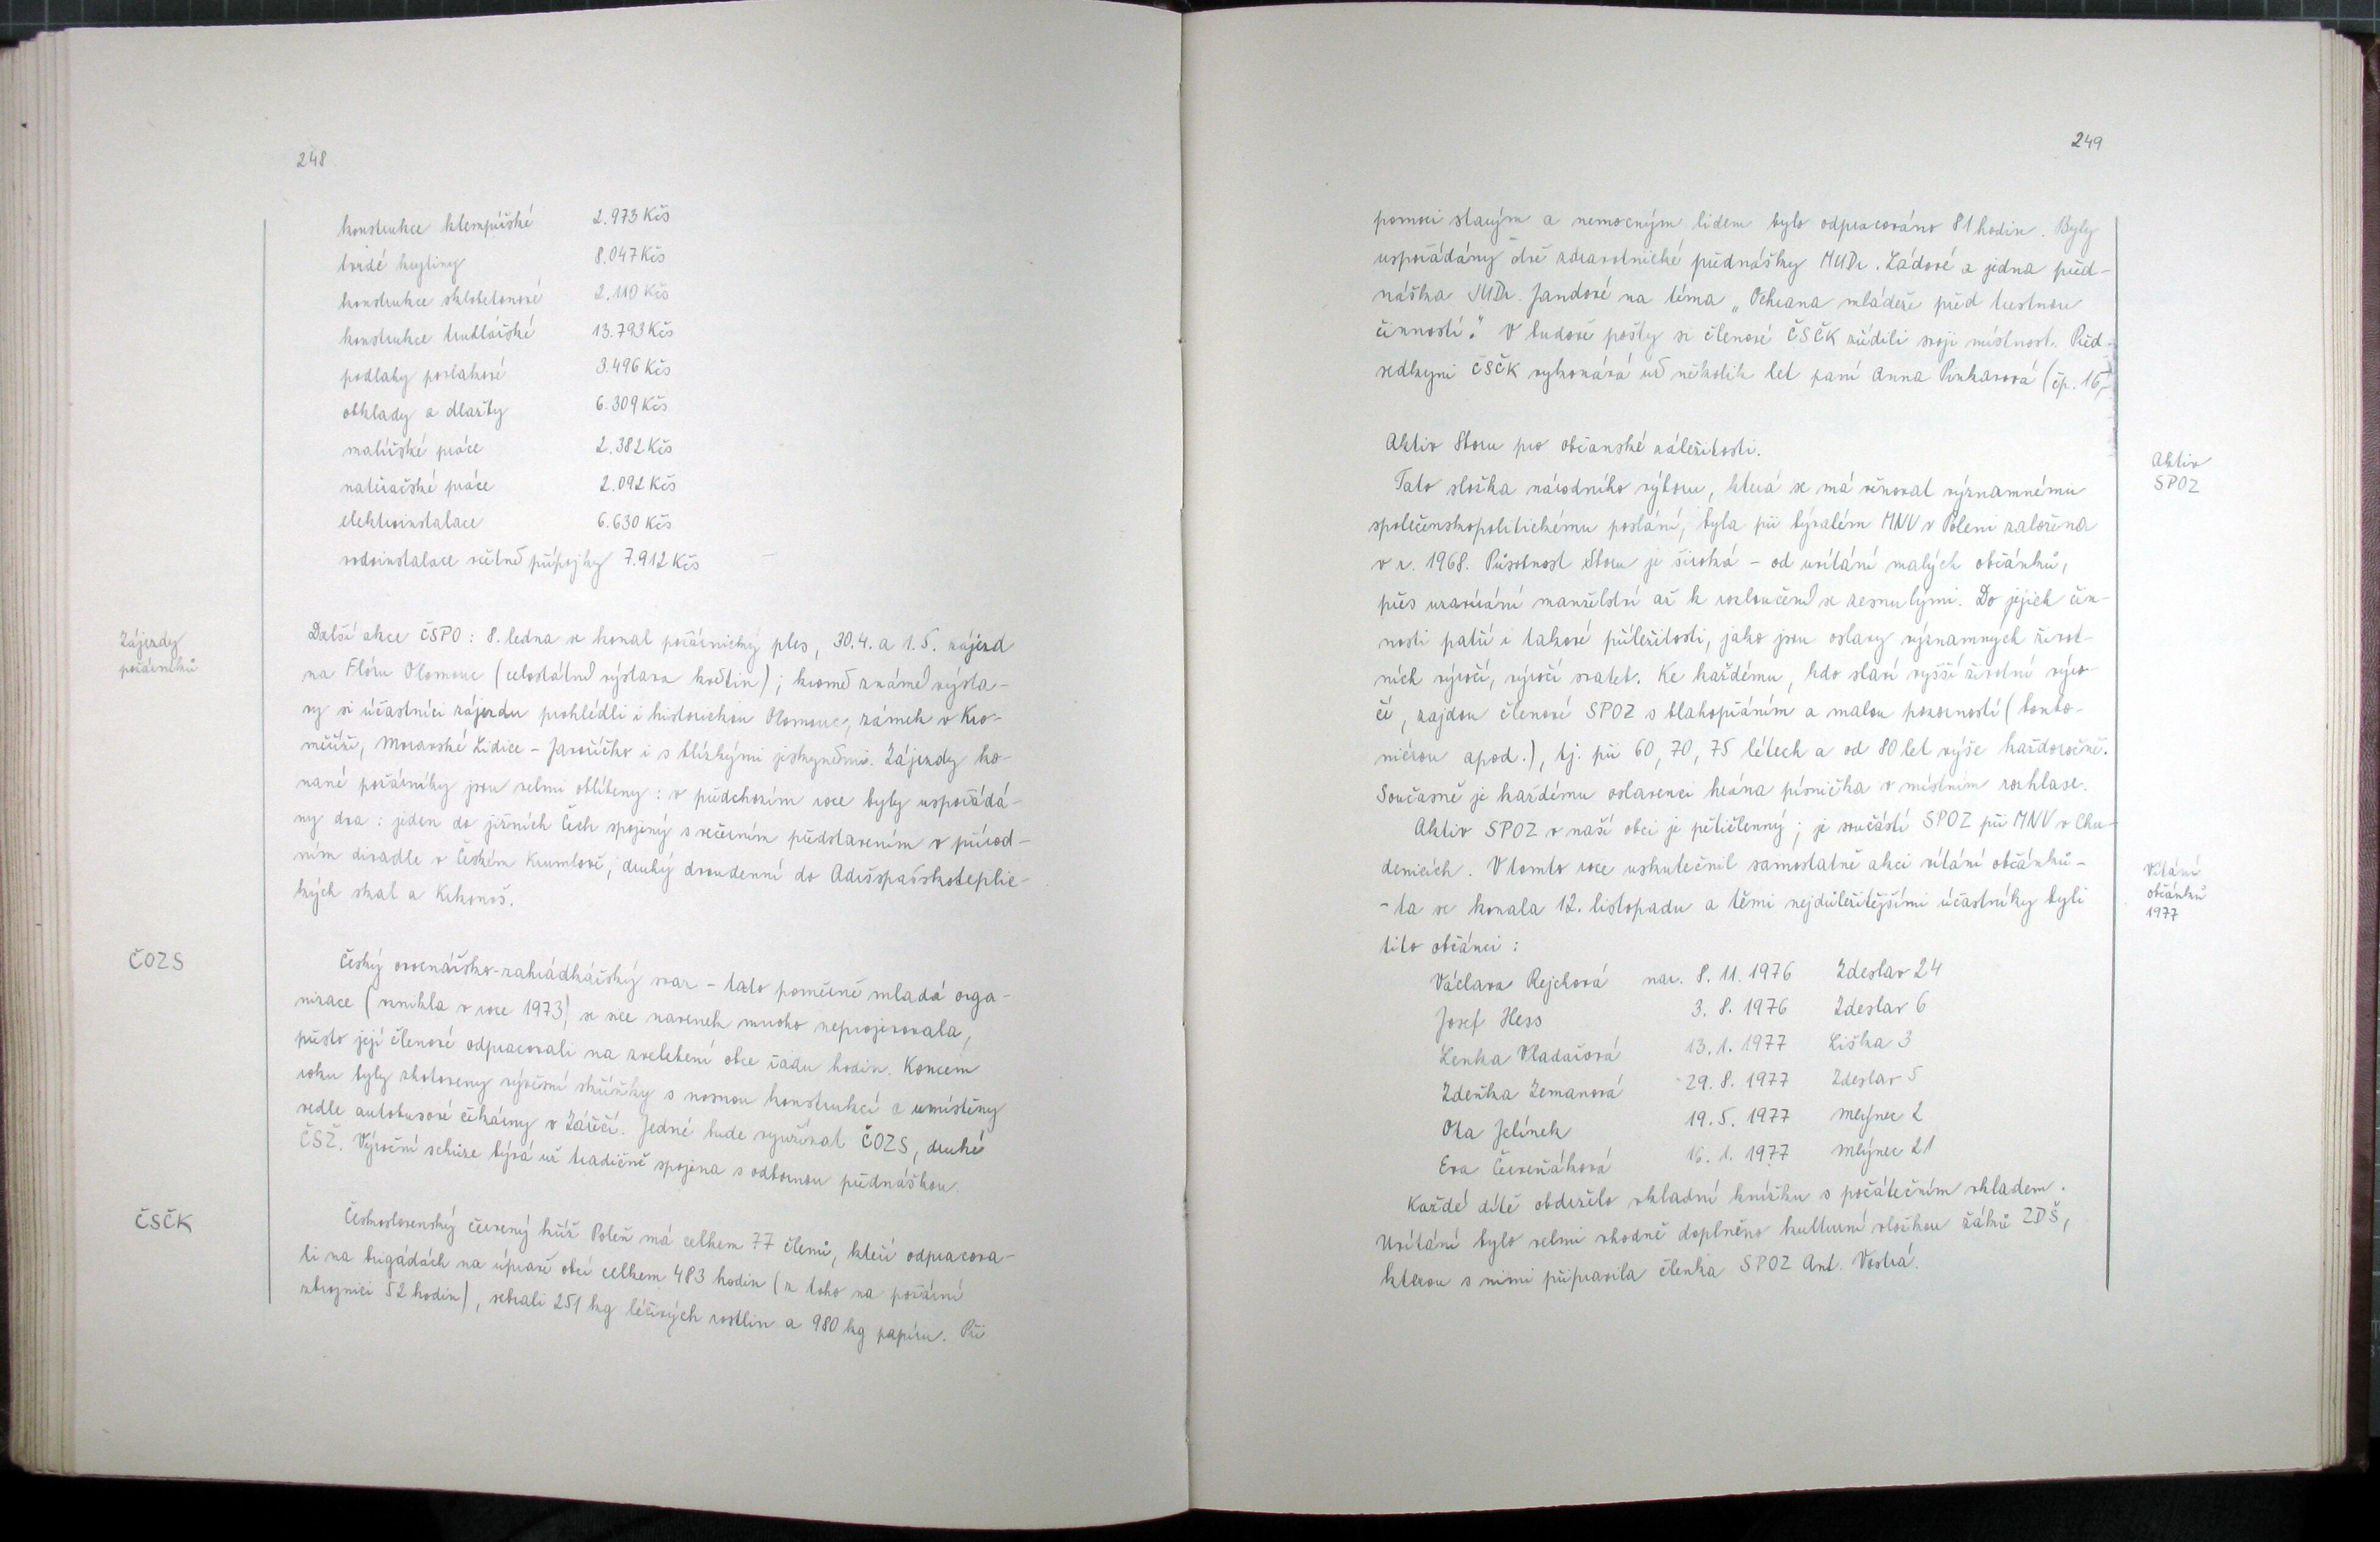 248
konstrukce klempířské 2.973 Kčs
tvrdé krytiny 8.047 Kčs
konstrukce sklobetonové 2.110 Kčs
konstrukce truhlářské 13.793 Kčs
podlahy povlakové 3.496 Kčs
obklady a dlažby 6.309 Kčs
malířské práce 2.382 Kčs
natěračské práce 2.092 Kčs
elektroinstalace 6.630 Kčs
vodoinstalace včetně přípojky 7.912 Kčs
Zájezdy
požárníků
Další akce ČSPO: 8. ledna se konal požárnický ples, 30.4. a 1.5. zájezd
na Flóru Olomouc (celostátní výstava květin); kromě známé výsta-
vy si účastníci zájezdu prohlédli i historickou Olomouc, zámek v Kro-
měříži, Moravské Lidice - Javoříčko i s blízkými jeskyněmi. Zájezdy ko-
nané požárníky jsou velmi oblíbeny: v předchozím roce byly uspořádá-
ny dva: jeden do jižních Čech spojený s večerním představením v přírod-
ním divadle v Českém Krumlově, druhý dvoudenní do Adršpašskoteplic-
kých skal a Krkonoš.
ČOZS
Český ovocnářsko-zahrádkářský svaz - tato poměrně mladá orga-
nizace (vznikla v roce 1973) se sice navenek mnoho neprojevovala,
přesto její členové odpracovali na zvelebení obce řadu hodin. Koncem
roku byly zhotoveny vývěsní skříňky s nosnou konstrukcí a umístěny
vedle autobusové čekárny v Záříčí. Jedné bude využívat ČOZS, druhé
ČSŽ. Výroční schůze bývá už tradičně spojena s odbornou přednáškou.
ČSČK
Československý červený kříž Poleň má celkem 77 členů, kteří odpracova-
li na brigádách na úpravě obcí celkem 483 hodin (z toho na požární
zbrojnici 52 hodin), sebrali 251 kg léčivých rostlin a 980 kg papíru. Při
249
pomoci starým a nemocným lidem bylo odpracováno 81 hodin. Byly
uspořádány dvě zdravotnické přednášky MUDr. Ládové a jedna před-
náška JUDr. Jandové na téma „Ochrana mládeže před trestnou
činností." V budově pošty si členové ČSČK zřídili svoji místnost. Před-
sedkyni ČSČK vykonává už několik let paní Anna Pinkasová (čp. 16)
Aktiv Sboru pro občanské záležitosti.
Aktiv
SPOZ
Tato složka národního výboru, která se má věnovat významnému
společenskopolitickému poslání, byla při bývalém MNV v Poleni založena
v r. 1968. Působnost Sboru je široká - od uvítání malých občánků,
přes uzavírání manželství až k rozloučení se zesnulými. Do jejich čin-
nosti patří i takové příležitosti, jako jsou oslavy významných život-
ních výročí, výročí svateb. Ke každému, kdo slaví vyšší životní výro-
čí, zajdou členové SPOZ s blahopřáním a malou pozorností (bonbo-
niérou apod.), tj. při 60, 70, 75 létech a od 80 let výše každoročně.
Současně je každému oslavenci hrána písnička v místním rozhlase.
Aktiv SPOZ v naší obci je pětičlenný; je součástí SPOZ při MNV v Chu-
denicích. V tomto roce uskutečnil samostatně akci vítání občánků -
Vítání
občánků
1977
- ta se konala 12. listopadu a těmi nejdůležitějšími účastníky byli
tito občánci:
Václava Rejchová nar. 8. 11. 1976 Zdeslav 24
Josef Hess 3. 8. 1976 Zdeslav 6
Lenka Vladařová 13. 1. 1977 Liška 3
Zdeňka Zemanová 29. 8. 1977 Zdeslav 5
Ota Jelínek 19. 5. 1977 Mlýnec 2
Eva Červeňáková 16. 1. 1977 Mlýnec 21
Každé dítě obdrželo vkladní knížku s počátečním vkladem.
Uvítání bylo velmi vhodně doplněno kulturní vložkou žáků ZDŠ,
kterou s nimi připravila členka SPOZ Ant. Vostrá.